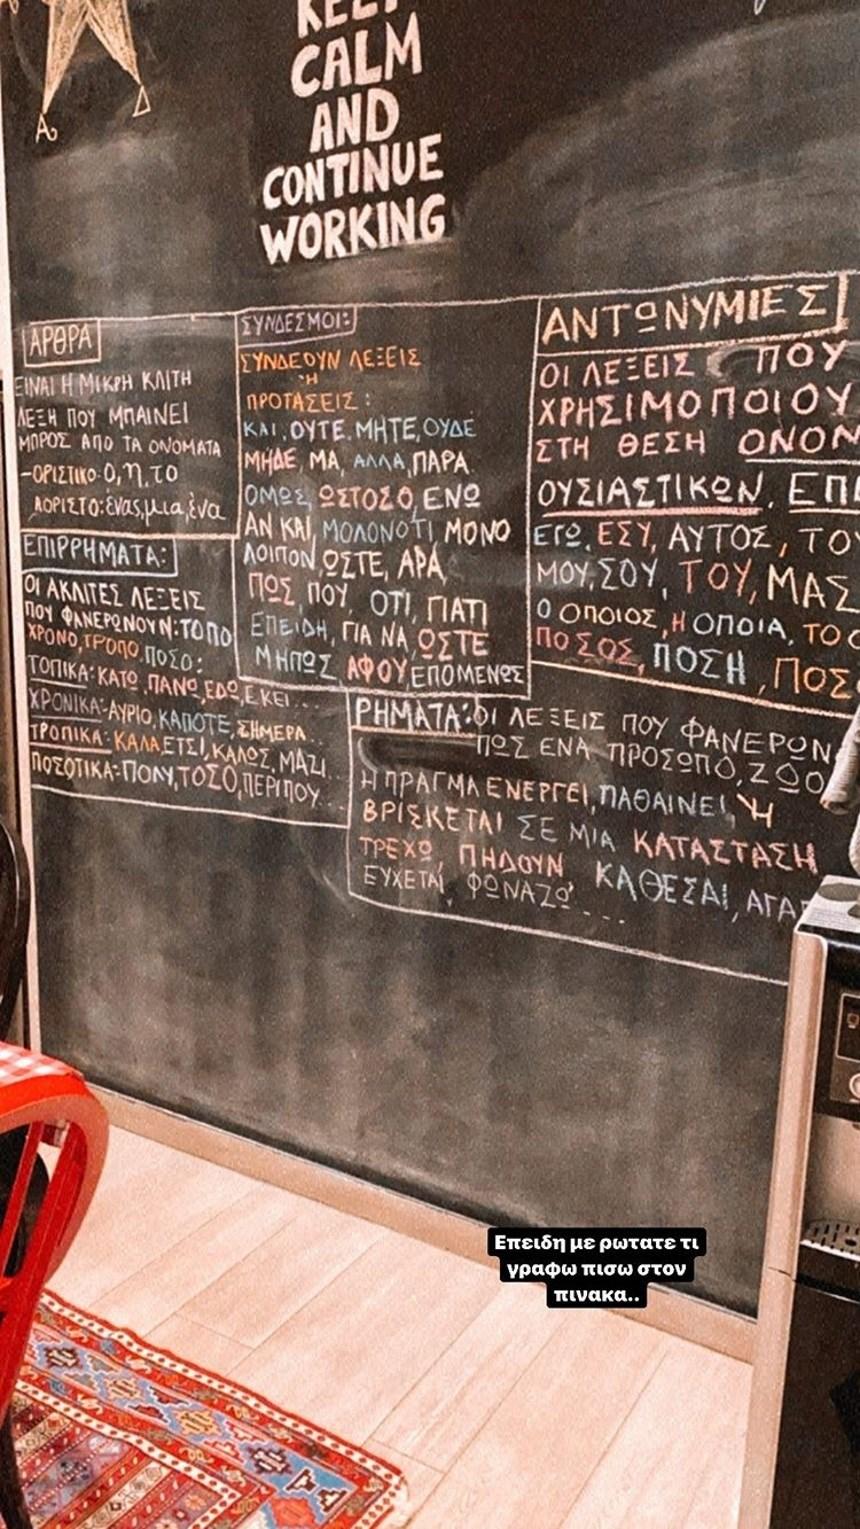 KEEP
CALM
AND
CONTINUE
WORKING
ΑΡΘΡΑ
ΕΙΝΑΙ Η ΜΙΚΡΗ ΚΛΙΤΗ
ΛΕΞΗ ΠΟΥ ΜΠΑΙΝΕΙ
ΜΠΡΟΣ ΑΠΟ ΤΑ ΟΝΟΜΑΤΑ
-ΟΡΙΣΤΙΚΟ: Ο, η, το
ΑΟΡΙΣΤΟ: ένας, μια, ένα
ΕΠΙΡΡΗΜΑΤΑ:
ΟΙ ΑΚΛΙΤΕΣ ΛΕΞΕΙΣ
ΠΟΥ ΦΑΝΕΡΩΝΟΥΝ: ΤΟΠΟ
ΧΡΟΝΟ, ΤΡΟΠΟ, ΠΟΣΟ:
ΤΟΠΙΚΑ: ΚΑΤΩ, ΠΑΝΩ, ΕΔΩ, ΕΚΕΙ...
ΧΡΟΝΙΚΑ:-ΑΥΡΙΟ, ΚΑΠΟΤΕ, ΣΗΜΕΡΑ..
ΤΡΟΠΙΚΑ: ΚΑΛΑ, ΕΤΣΙ, ΚΑΛΩΣ, ΜΑΖΙ...
ΠΟΣΟΤΙΚΑ: ΠΟΛΥ, ΤΟΣΟ, ΠΕΡΙΠΟΥ...
ΣΥΝΔΕΣΜΟΙ:
ΣΥΝΔΕΟΥΝ ΛΕΞΕΙΣ
Ή
ΠΡΟΤΑΣΕΙΣ:
ΚΑΙ, ΟΥΤΕ, ΜΗΤΕ, ΟΥΔΕ
ΜΗΔΕ, ΜΑ, ΑΛΛΑ, ΠΑΡΑ
ΟΜΩΣ, ΩΣΤΟΣΟ, ΕΝΩ
ΑΝ ΚΑΙ, ΜΟΛΟΝΟΤΙ ΜΟΝΟ
ΛΟΙΠΟΝ, ΩΣΤΕ, ΑΡΑ,
ΠΩΣ, ΠΟΥ, ΟΤΙ, ΓΙΑΤΙ
ΕΠΕΙΔΗ, ΓΙΑ ΝΑ, ΩΣΤΕ
ΜΗΠΩΣ, ΑΦΟΥ, ΕΠΟΜΕΝΩΣ
ΑΝΤΩΝΥΜΙΕΣ
ΟΙ ΛΕΞΕΙΣ ΠΟΥ
ΧΡΗΣΙΜΟΠΟΙΟΥ
ΣΤΗ ΘΕΣΗ ΟΝΟΜ
ΟΥΣΙΑΣΤΙΚΩΝ, ΕΠΙ
ΕΓΩ, ΕΣΥ, ΑΥΤΟΣ, ΤΟΥ
ΜΟΥ, ΣΟΥ, ΤΟΥ, ΜΑΣ
Ο ΟΠΟΙΟΣ, Η ΟΠΟΙΑ, ΤΟ Ο
ΠΟΣΟΣ, ΠΟΣΗ, ΠΟΣ
ΡΗΜΑΤΑ: ΟΙ ΛΕΞΕΙΣ ΠΟΥ ΦΑΝΕΡΩΝ
ΠΩΣ ΕΝΑ ΠΡΟΣΩΠΟ, ΖΩΟ
Η ΠΡΑΓΜΑ ΕΝΕΡΓΕΙ, ΠΑΘΑΙΝΕΙ, Ή
ΒΡΙΣΚΕΤΑΙ ΣΕ ΜΙΑ ΚΑΤΑΣΤΑΣΗ
ΤΡΕΧΩ, ΠΗΔΟΥΝ ΚΑΘΕΣΑΙ, ΑΓΑΠ
ΕΥΧΕΤΑΙ, ΦΩΝΑΖΩ....
Επειδη με ρωτατε τι
γραφω πισω στον
πινακα..